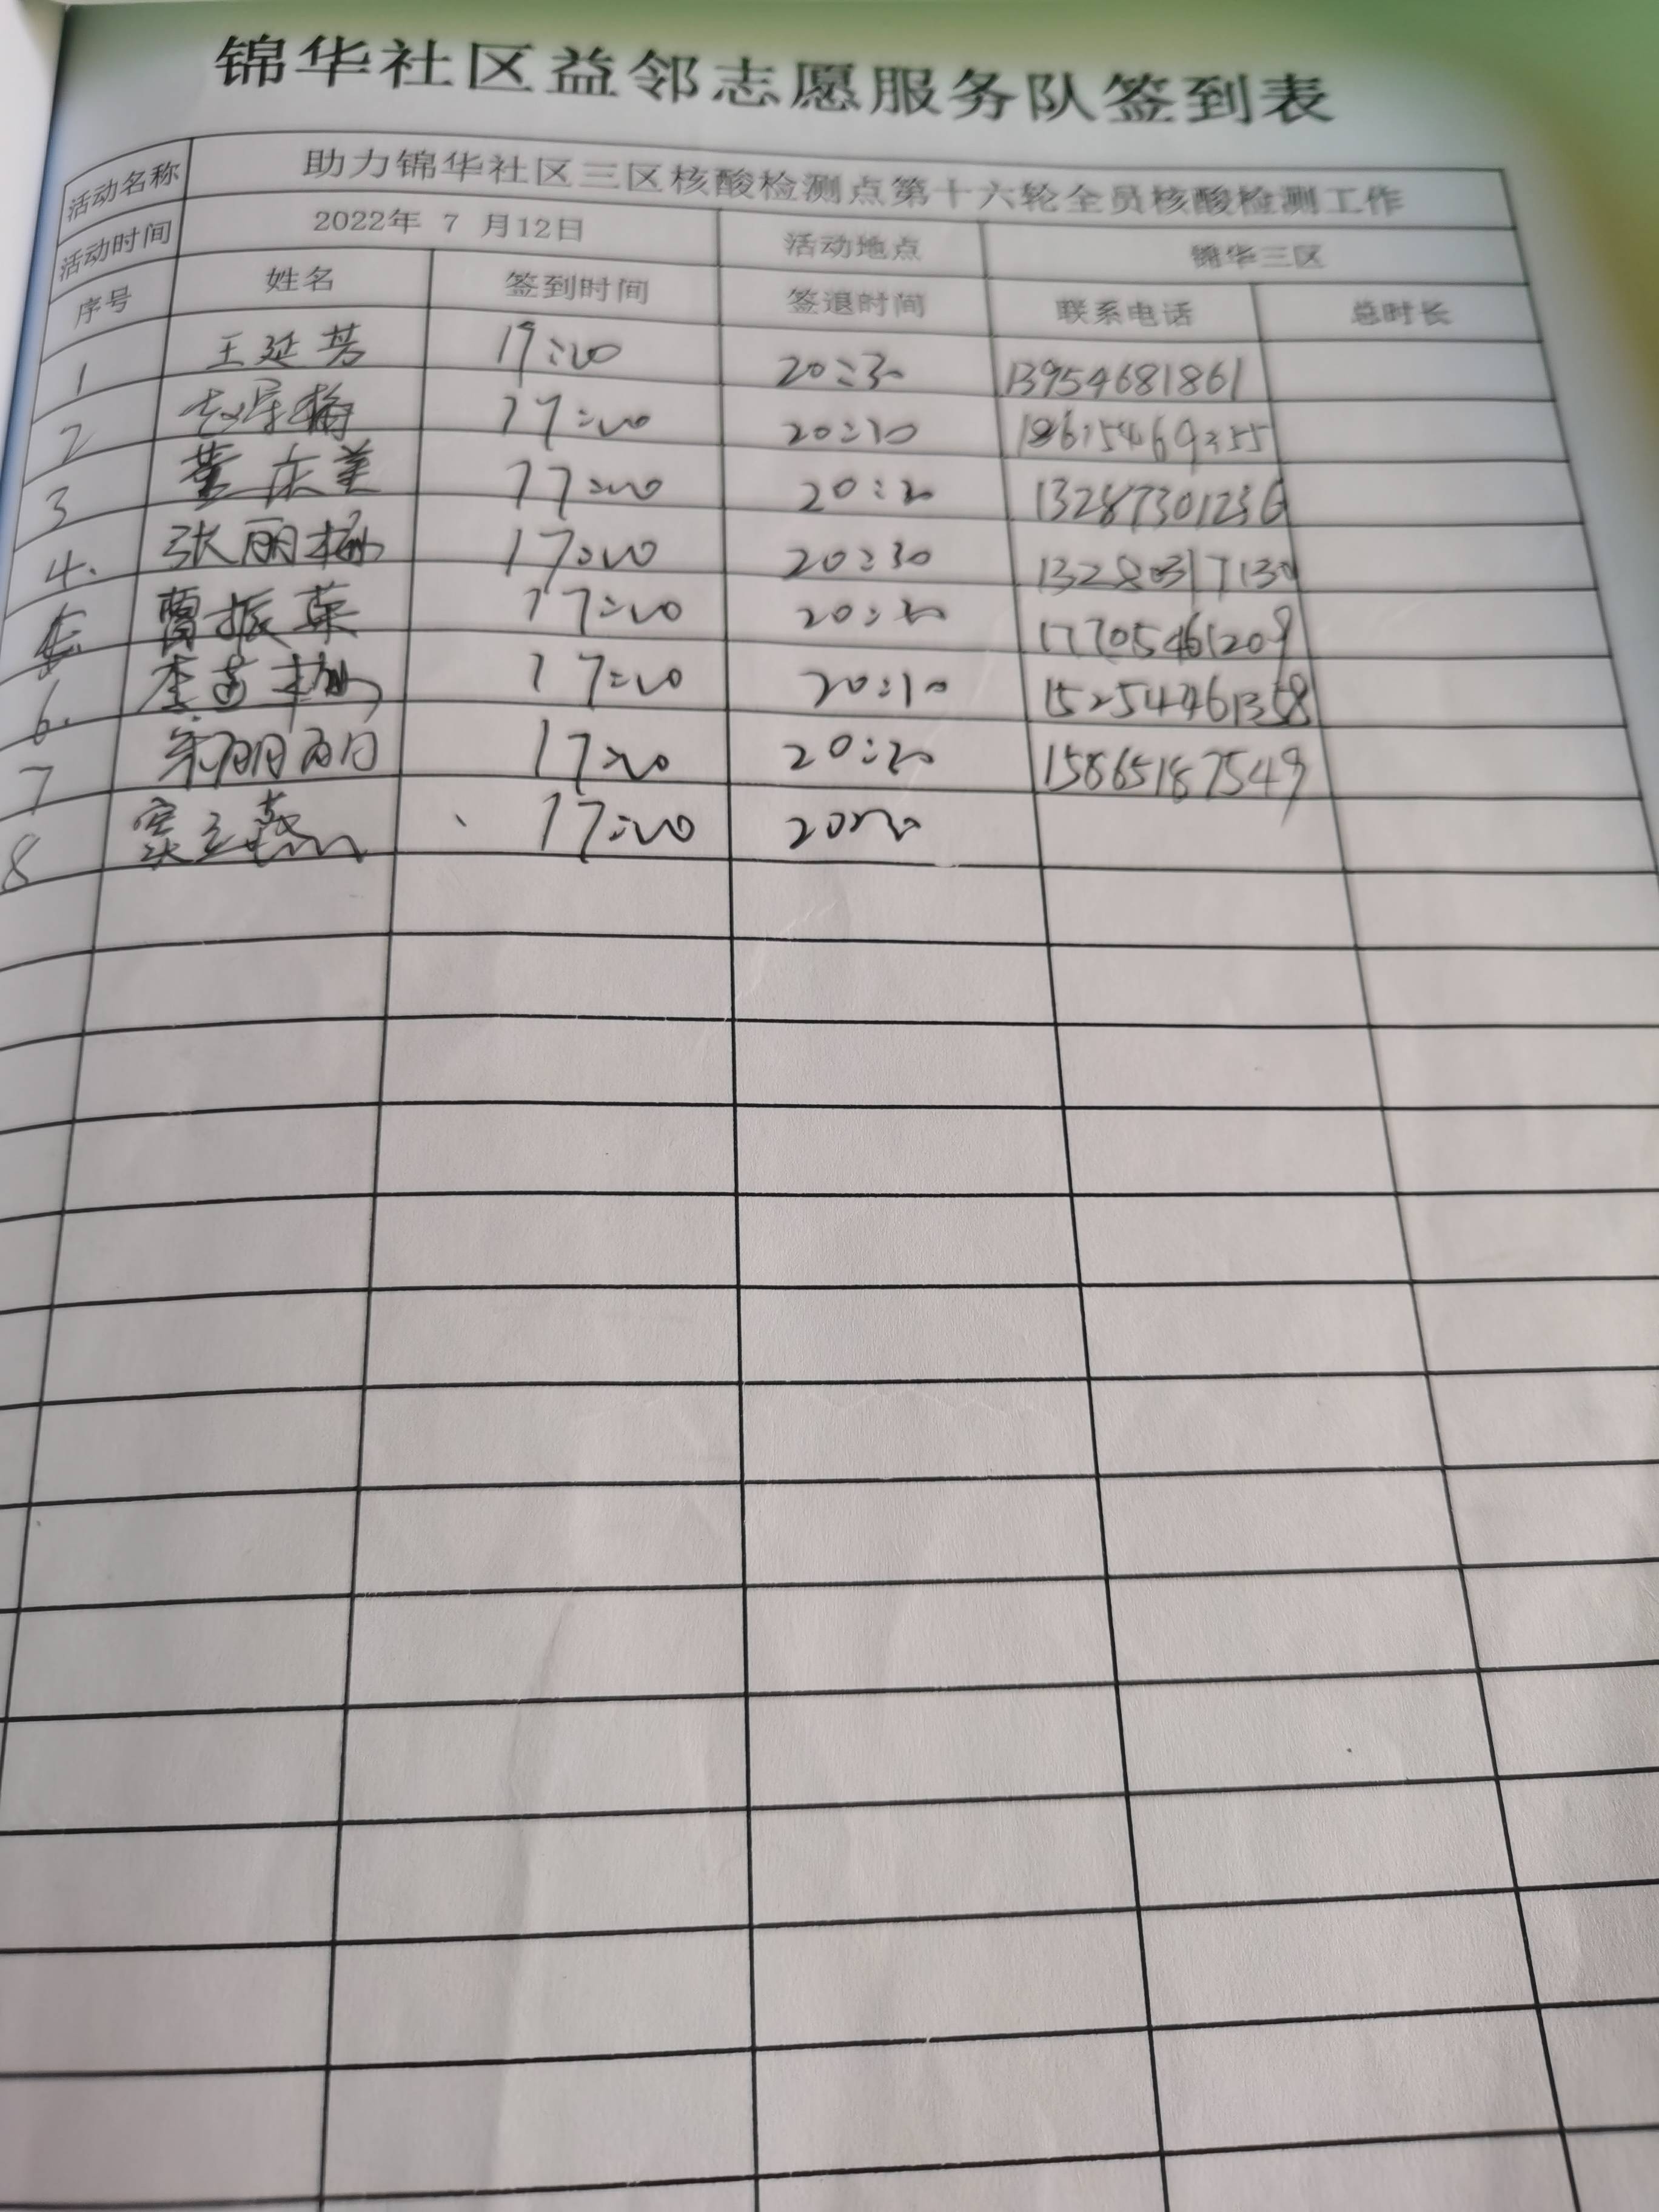 锦华社区益邻志愿服务队签到表
活动名称 助力锦华社区三区核酸检测点第十六轮全员核酸检测工作
活动时间 2022年 7 月12日 活动地点 锦华三区
序号 姓名 签到时间 签退时间 联系电话 总时长
1 王延芳 20:30 13954681861
2 17:00 18615469355
3 董庆美 17:00 13287301236
4. 张丽梅 17:00 20:30 13280317130
曹振英 17:00 17705461209
6. 17:00 15254461358
7 宋丽丽 17:00 15865187549
8 17:00